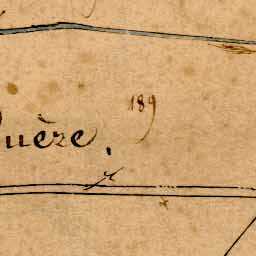 189
uère.